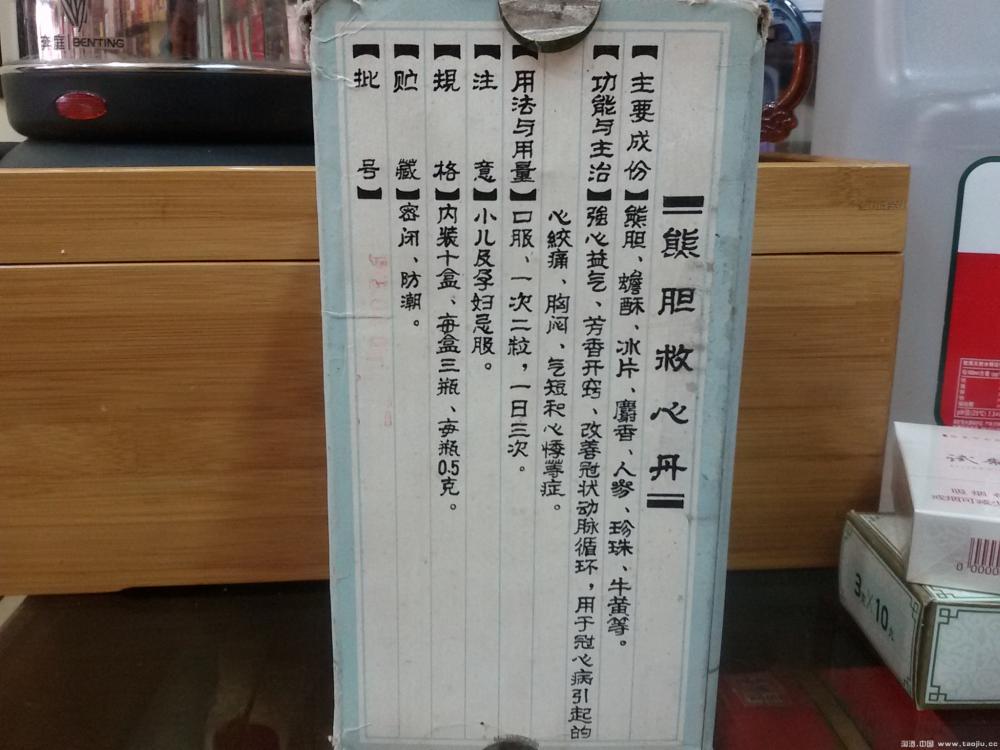 熊胆救心丹
【主要成份】熊胆、蟾酥、冰片、麝香、人参、珍珠、牛黄等。
【功能与主治】強心益气、芳香开窍、改善冠状动脉循环，用于冠心病引起的
心絞痛、胸闷、气短和心悸等症。
【用法与用量】口服、一次二粒，一日三次。
【注意】小儿及孕妇忌服。
【规格】内装十盒、每盒三瓶、每瓶0.5克。
【贮藏】密闭、防潮。
【批号】
奔庭 BENTING
3 X 10
淘酒.中国 www.taojiu.cc